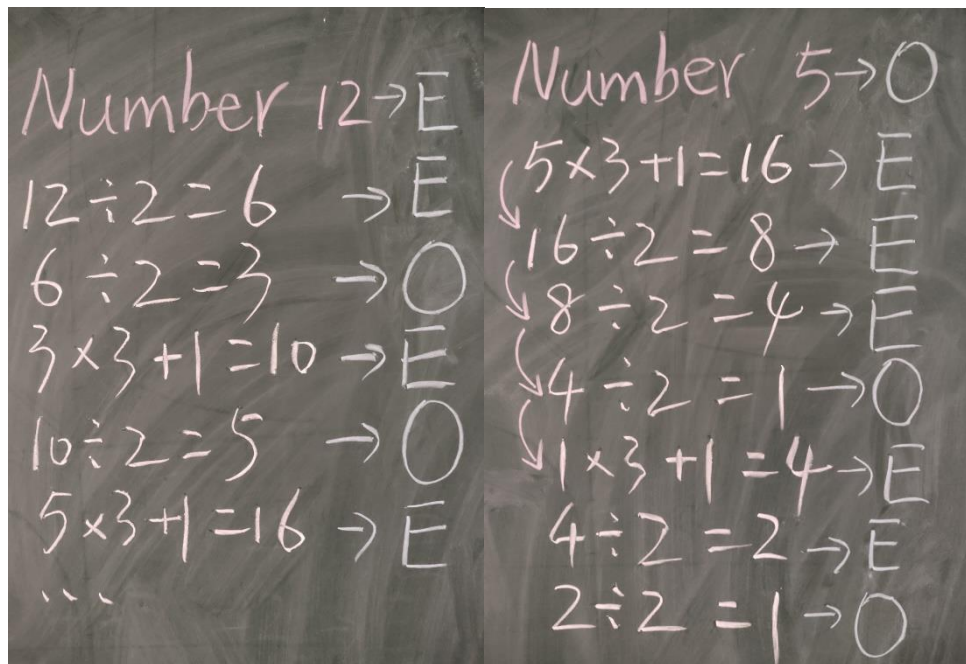 Number 12→E
12÷2=6 →E
6÷2=3 →O
3×3+1=10 →E
10÷2=5 →O
5×3+1=16 →E
...
Number 5→O
5×3+1=16 →E
16÷2=8 →E
8÷2=4 →E
4÷2=1 →O
1×3+1=4 →E
4÷2=2 →E
2÷2=1 →O